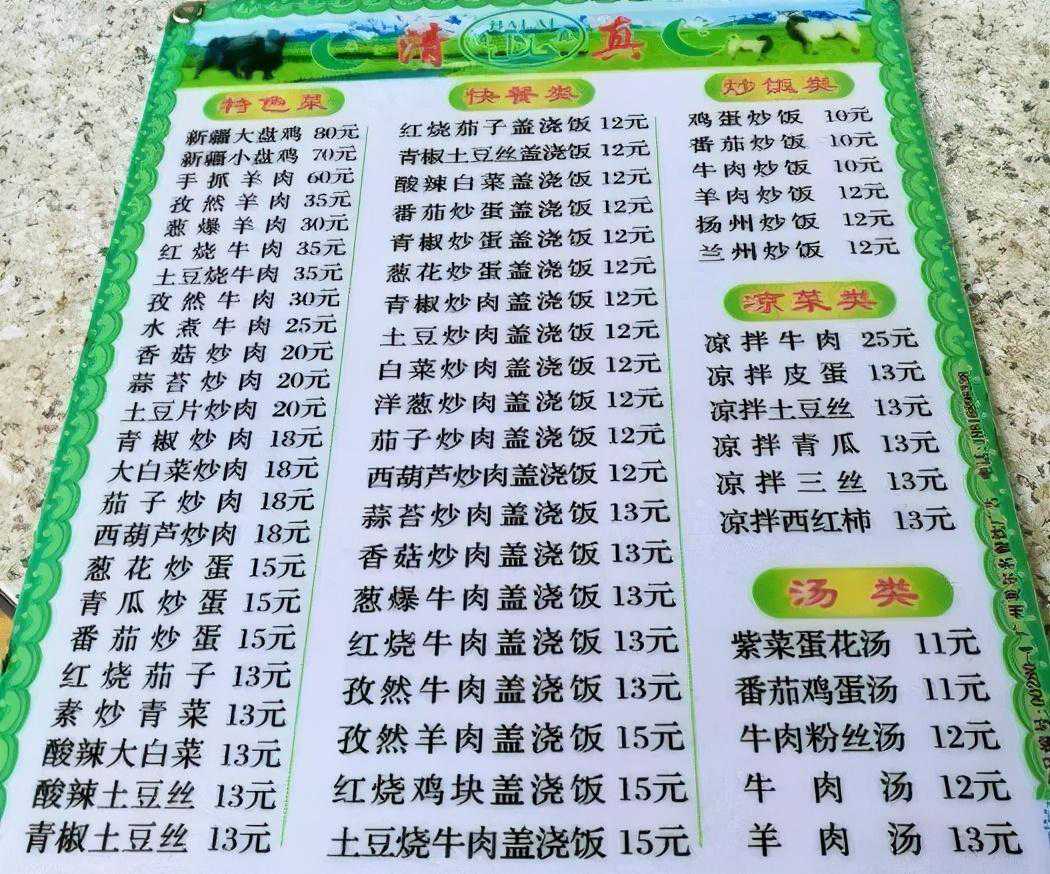 清 HALAL 真
特色菜
新疆大盘鸡 80元
新疆小盘鸡 70元
手抓羊肉 60元
孜然羊肉 35元
葱爆羊肉 30元
红烧牛肉 35元
土豆烧牛肉 35元
孜然牛肉 30元
水煮牛肉 25元
香菇炒肉 20元
蒜苔炒肉 20元
土豆片炒肉 20元
青椒炒肉 18元
大白菜炒肉 18元
茄子炒肉 18元
西葫芦炒肉 18元
葱花炒蛋 15元
青瓜炒蛋 15元
番茄炒蛋 15元
红烧茄子 13元
素炒青菜 13元
酸辣大白菜 13元
酸辣土豆丝 13元
青椒土豆丝 13元
快餐类
红烧茄子盖浇饭 12元
青椒土豆丝盖浇饭 12元
酸辣白菜盖浇饭 12元
番茄炒蛋盖浇饭 12元
青椒炒蛋盖浇饭 12元
葱花炒蛋盖浇饭 12元
青椒炒肉盖浇饭 12元
土豆炒肉盖浇饭 12元
白菜炒肉盖浇饭 12元
洋葱炒肉盖浇饭 12元
茄子炒肉盖浇饭 12元
西葫芦炒肉盖浇饭 12元
蒜苔炒肉盖浇饭 13元
香菇炒肉盖浇饭 13元
葱爆牛肉盖浇饭 13元
红烧牛肉盖浇饭 13元
孜然牛肉盖浇饭 13元
孜然羊肉盖浇饭 15元
红烧鸡块盖浇饭 15元
土豆烧牛肉盖浇饭 15元
炒饭类
鸡蛋炒饭 10元
番茄炒饭 10元
牛肉炒饭 10元
羊肉炒饭 12元
扬州炒饭 12元
兰州炒饭 12元
凉菜类
凉拌牛肉 25元
凉拌皮蛋 13元
凉拌土豆丝 13元
凉拌青瓜 13元
凉拌三丝 13元
凉拌西红柿 13元
汤类
紫菜蛋花汤 11元
番茄鸡蛋汤 11元
牛肉粉丝汤 12元
牛肉汤 12元
羊肉汤 13元